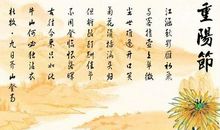 重陽節
江涵秋影雁初飛
与客攜壺上翠微
尘世难逢开口笑
菊花須插滿头歸
但將酩酊酬佳節
不用登臨恨落暉
古往今來只如此
牛山何必獨沾衣
杜牧·九日齊山登高